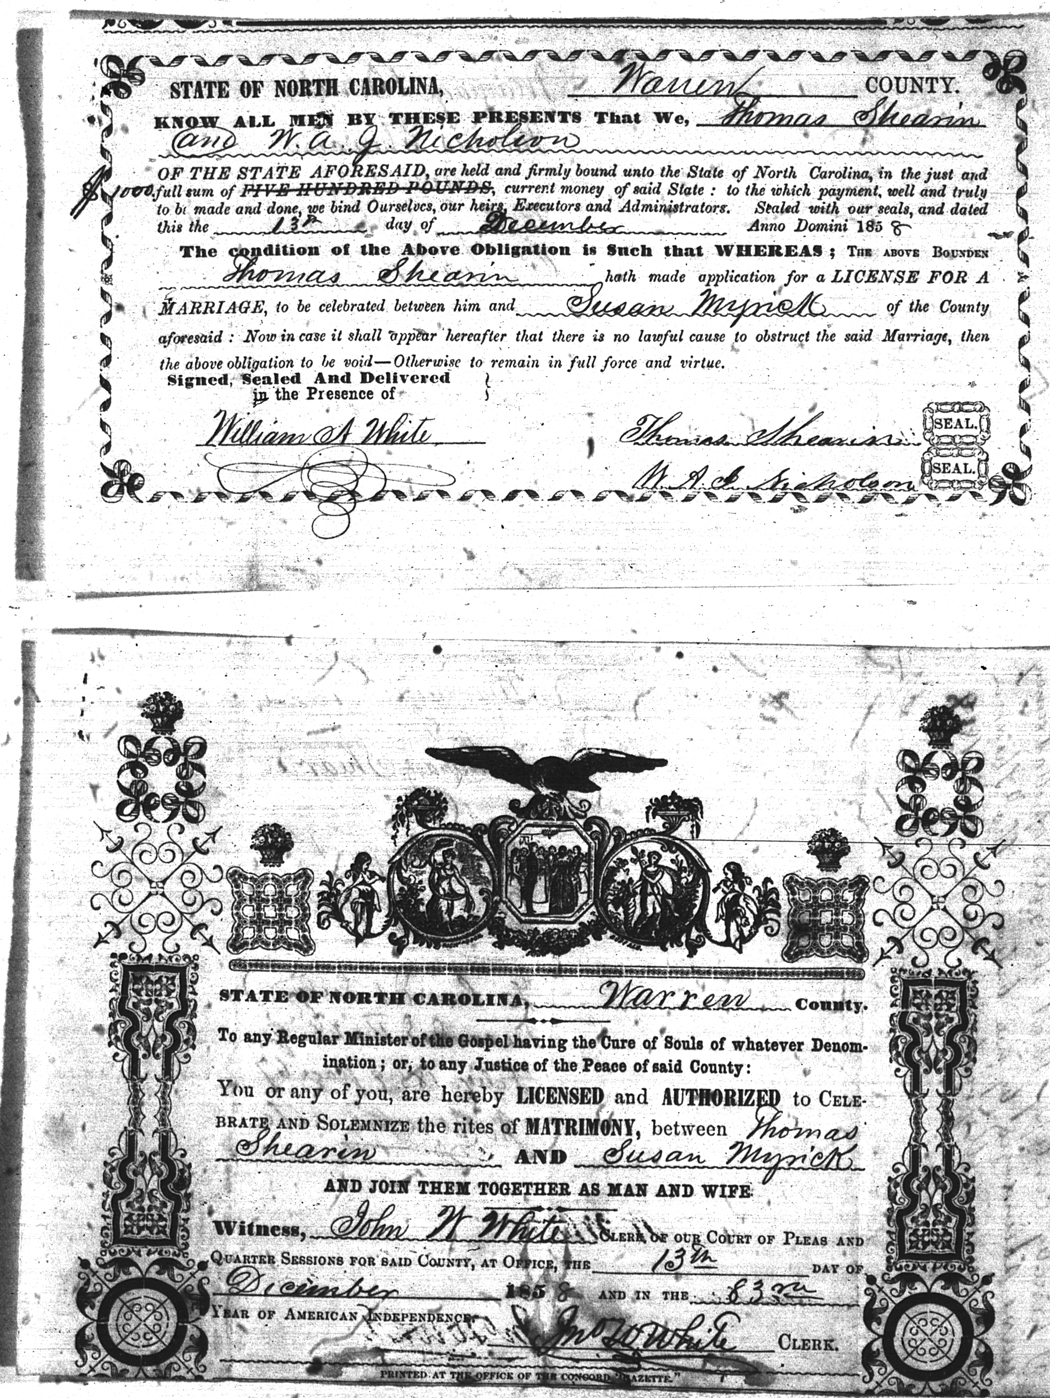 STATE OF NORTH CAROLINA, Warren COUNTY.
KNOW ALL MEN BY THESE PRESENTS That We, Thomas Shearin
and W. A. J. Nicholson
OF THE STATE AFORESAID, are held and firmly bound unto the State of North Carolina, in the just and
$1000, full sum of FIVE HUNDRED POUNDS, current money of said State : to the which payment, well and truly
to be made and done, we bind Ourselves, our heirs, Executors and Administrators. Sealed with our seals, and dated
this the 13th day of December Anno Domini 1858
The condition of the Above Obligation is Such that WHEREAS ; THE ABOVE BOUNDEN
Thomas Shearin hath made application for a LICENSE FOR A
MARRIAGE, to be celebrated between him and Susan Myrick of the County
aforesaid : Now in case it shall appear hereafter that there is no lawful cause to obstruct the said Marriage, then
the above obligation to be void—Otherwise to remain in full force and virtue.
Signed, Sealed And Delivered
in the Presence of
William A White Thomas Shearin SEAL.
W. A. J. Nicholson SEAL.
STATE OF NORTH CAROLINA, Warren County.
To any Regular Minister of the Gospel having the Cure of Souls of whatever Denom-
ination ; or, to any Justice of the Peace of said County :
You or any of you, are hereby LICENSED and AUTHORIZED to CELE-
BRATE AND SOLEMNIZE the rites of MATRIMONY, between Thomas
Shearin AND Susan Myrick
AND JOIN THEM TOGETHER AS MAN AND WIFE.
Witness, John W White CLERK OF OUR COURT OF PLEAS AND
QUARTER SESSIONS FOR SAID COUNTY, AT OFFICE, THE 13th DAY OF
December 1858 AND IN THE 83rd
YEAR OF AMERICAN INDEPENDENCE.
Jno W White CLERK.
PRINTED AT THE OFFICE OF THE CONCORD "GAZETTE."